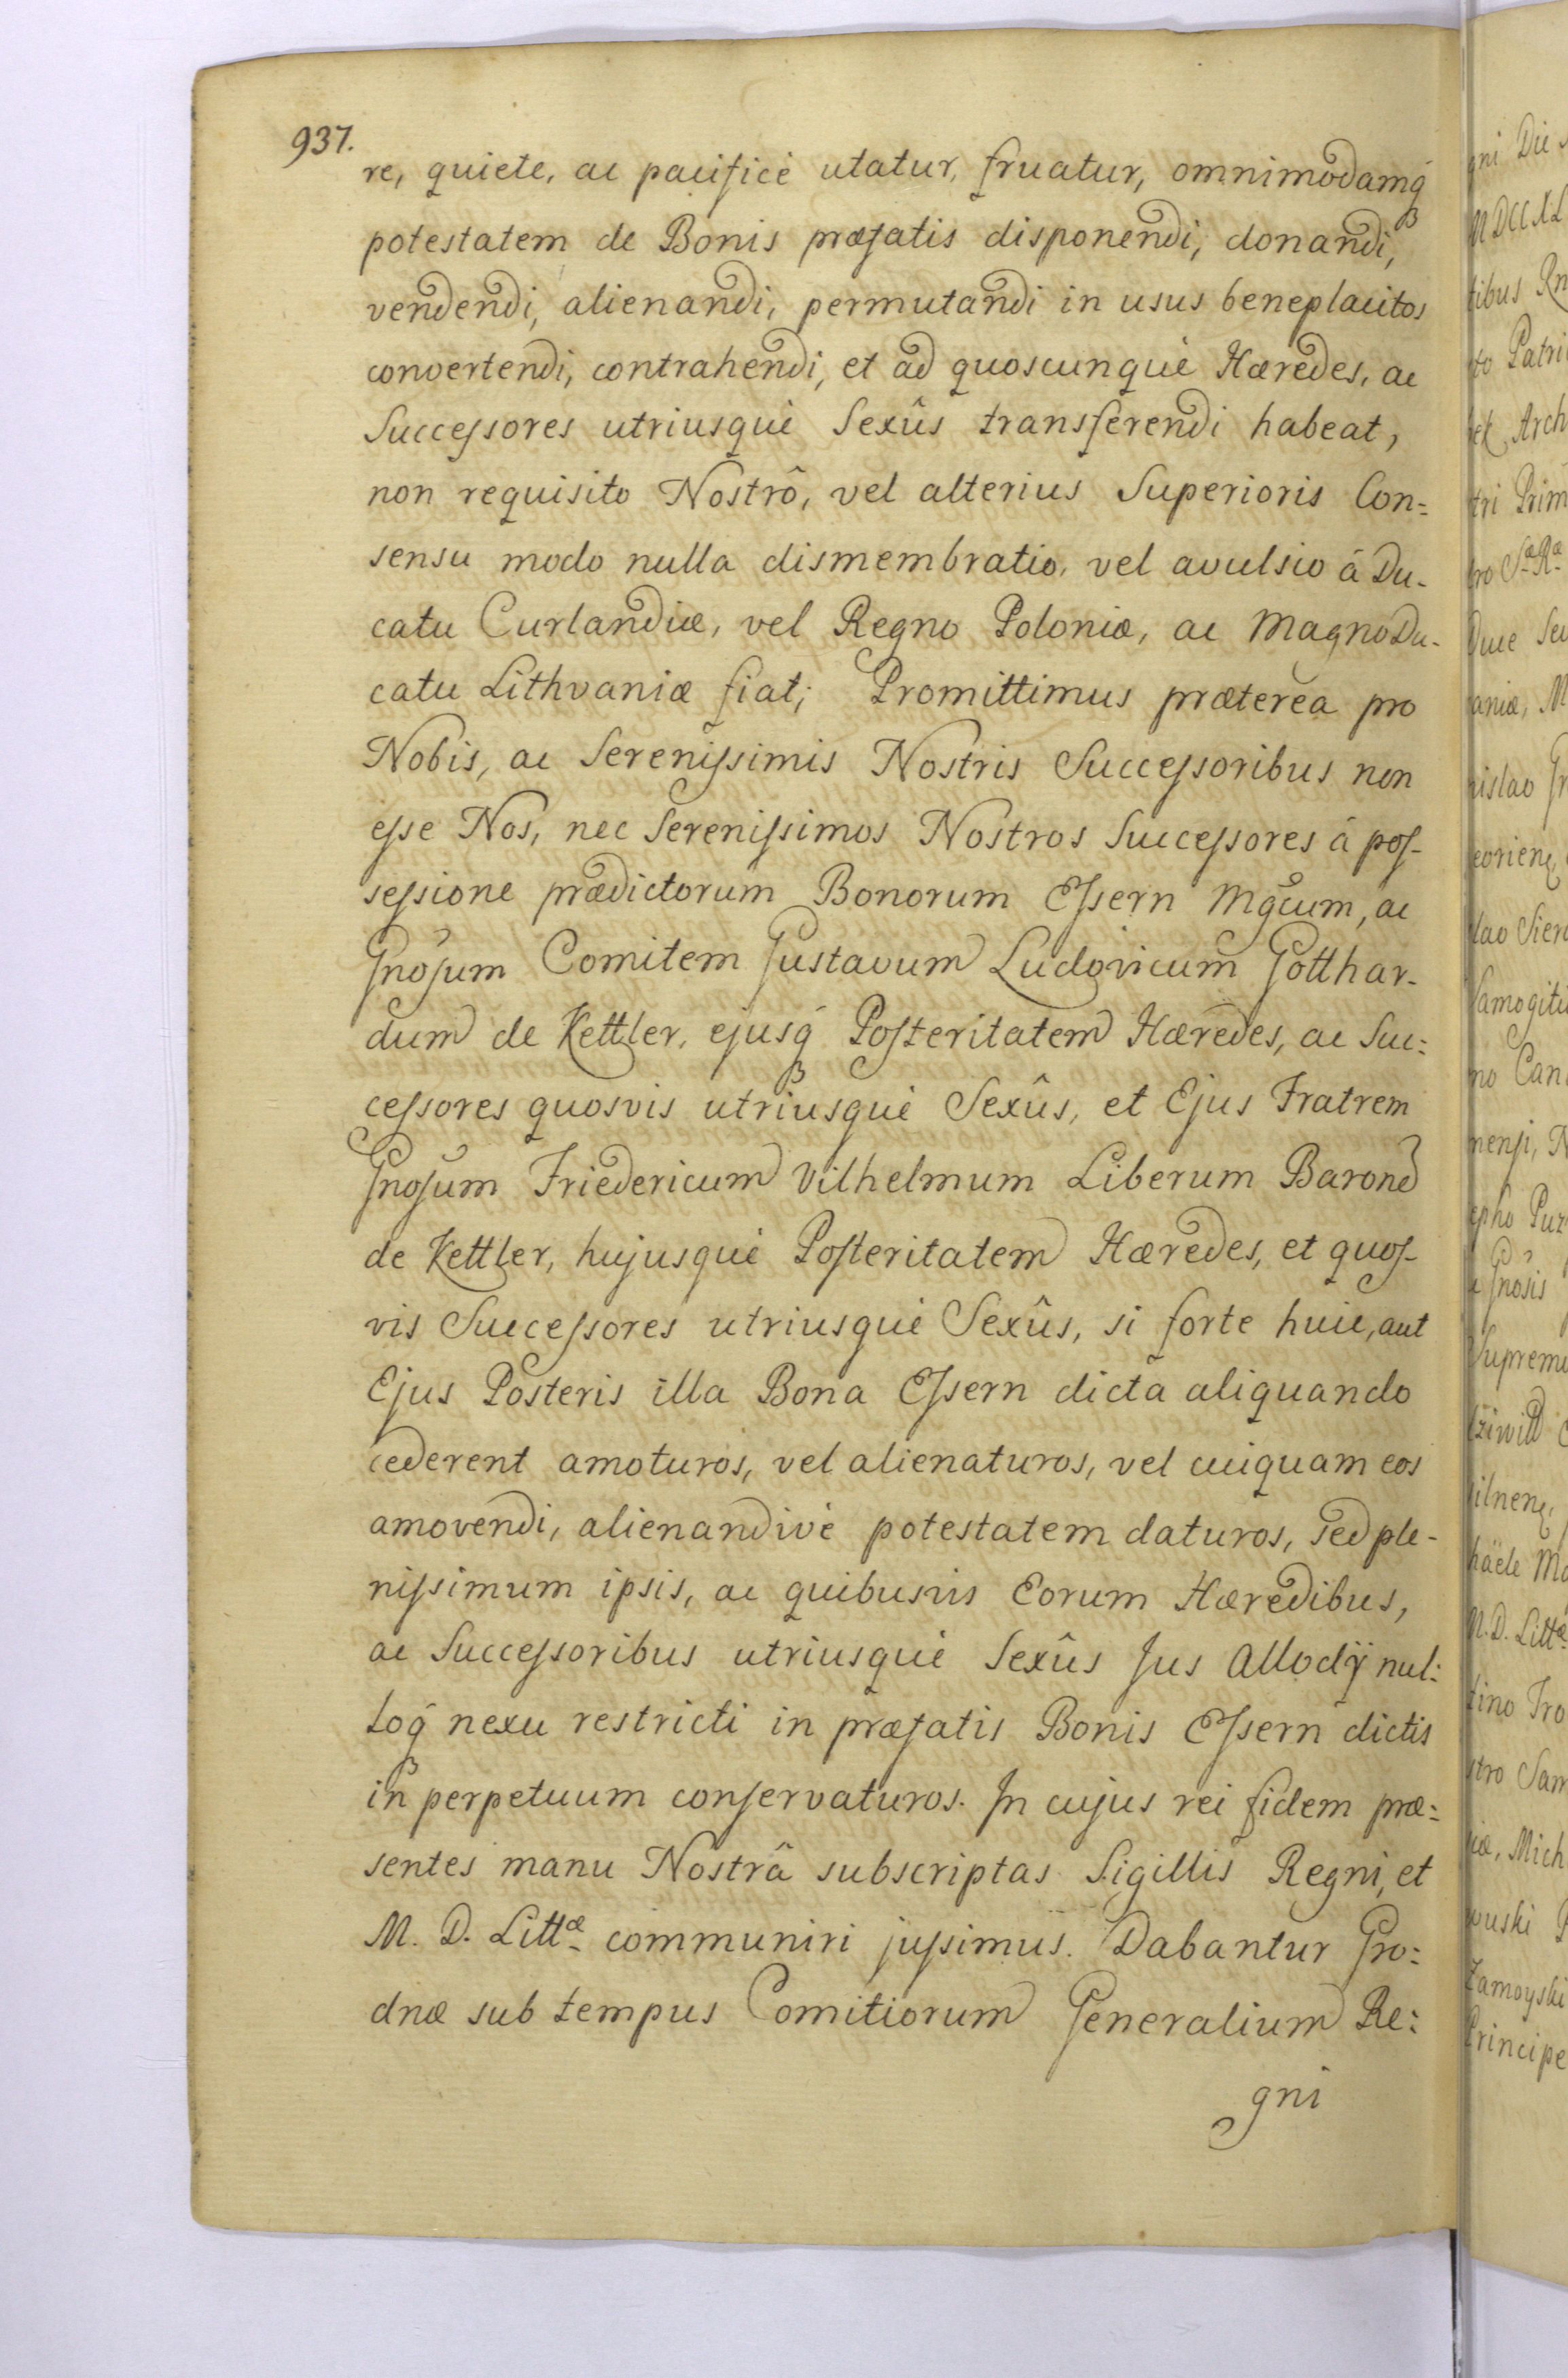 937.
re, quiete, ac pacificè utatur, fruatur, omnimodamq́
potestatem de Bonis præfatis disponendi, donandi,
vendendi, alienandi, permutandi in usus beneplacitos
convertendi, contrahendi, et ad quoscunquè Hæredes, ac
Successores utriusquè Sexûs transferendi habeat,
non requisito Nostrô, vel alterius Superioris Con=
sensu modo nulla dismembratio, vel avulsio â Du-
catu Curlandiæ, vel Regno Poloniæ, ac Magno Du-
catu Lithvaniæ fiat; Promittimus præterea pro
Nobis, ac Serenissimis Nostris Successoribus non
esse Nos, nec Serenissimos Nostros Successores â pos-
sessione prædictorum Bonorum Essern Mgcum, ac
Gnosum Comitem Gustavum Ludovicum Gotthar-
dum de Kettler, ejusq́ Posteritatem Hæredes, ac Suc=
cessores quosvis utriusquè Sexûs, et Ejus Fratrem
Gnosum Friedericum Vilhelmum Liberum Baronem
de Kettler, hujusquè Posteritatem Hæredes, et quos-
vis Successores utriusquè Sexûs, si forte huic, aut
Ejus Posteris illa Bona Essern dicta aliquando
cederent amoturos, vel alienaturos, vel cuiquam eos
amovendi, alienandivè potestatem daturos, sed ple-
nissimum ipsis, ac quibusvis Eorum Hæredibus,
ac Successoribus utriusquè Sexûs Jus Allodÿ nul=
loq́ nexu restricti in præfatis Bonis Essern dictis
in perpetuum conservaturos. In cujus rei fidem præ=
sentes manu Nostrâ subscriptas Sigillis Regni, et
M. D. Littæ communiri jussimus. Dabantur Gro=
dnæ sub tempus Comitiorum Generalium Re=
gni